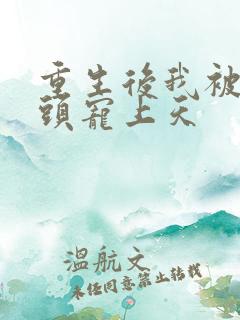 重生後我被
頭寵上天
溫航文
未任同意禁止转载